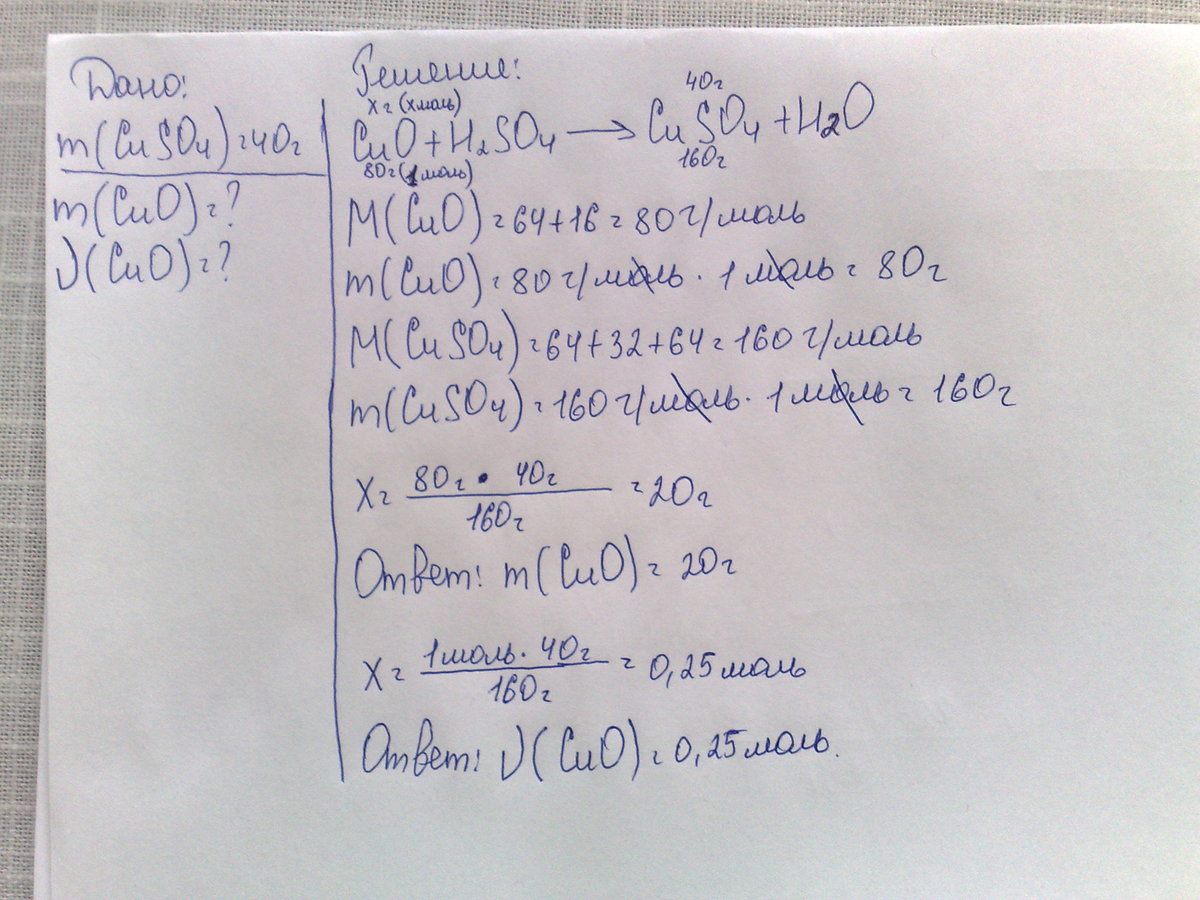 Дано:
m(CuSO4)=40г
m(CuO)=?
ν(CuO)=?
Решение:
хг(хмоль) 40г
CuO+H2SO4 → CuSO4+H2O
80г(1моль) 160г
M(CuO)=64+16=80г/моль
m(CuO)=80г/моль·1моль=80г
M(CuSO4)=64+32+64=160г/моль
m(CuSO4)=160г/моль·1моль=160г
X= 80г·40г / 160г =20г
Ответ: m(CuO)=20г
X= 1моль·40г / 160г =0,25моль
Ответ: ν(CuO)=0,25моль.